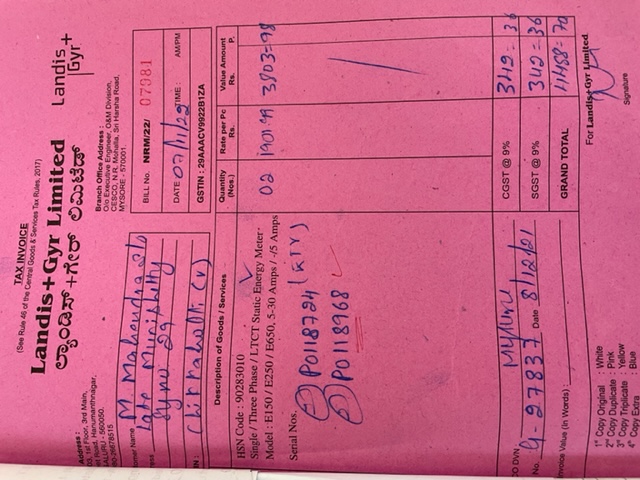 TAX INVOICE
(See Rule 46 of the Central Goods & Services Tax Rules, 2017)
Landis+Gyr Limited
ಲ್ಯಾಂಡಿಸ್+ಗೇರ್ ಲಿಮಿಟೆಡ್
Landis
Gyr+
Address :
1st Floor, 3rd Main,
Road, Hanumanthnagar,
560050.
26678515
Branch Office Address :
O/o Executive Engineer, O&M Division,
CESCO, N.R. Mohalla, Sri Harsha Road,
MYSORE - 570001.
BILL No. NRM/22/ 07981
DATE 07/11/22 TIME : AM/PM
GSTIN : 29AAACV9922B1ZA
Customer Name M. Mahendra S/o
Late
29
Chikkahalli (V)
Description of Goods / Services
Quantity (Nos.)
Rate per Pc Rs.
Value Amount Rs. P.
HSN Code : 90283010
Single / Three Phase / LTCT Static Energy Meter
Model : E150 / E250 / E650, 5-30 Amps / -/5 Amps
02 1901-99 3803=98
Serial Nos.
① P0118724
② P0118968
CGST @ 9% 342=36
SGST @ 9% 342=36
GRAND TOTAL 4488=70
DVN
No. G-27837 Date 8/12/21
Invoice Value (In Words) :
1st Copy Original : White
2nd Copy Duplicate : Pink
3rd Copy Triplicate : Yellow
4th Copy Extra : Blue
For Landis+Gyr Limited
Signature